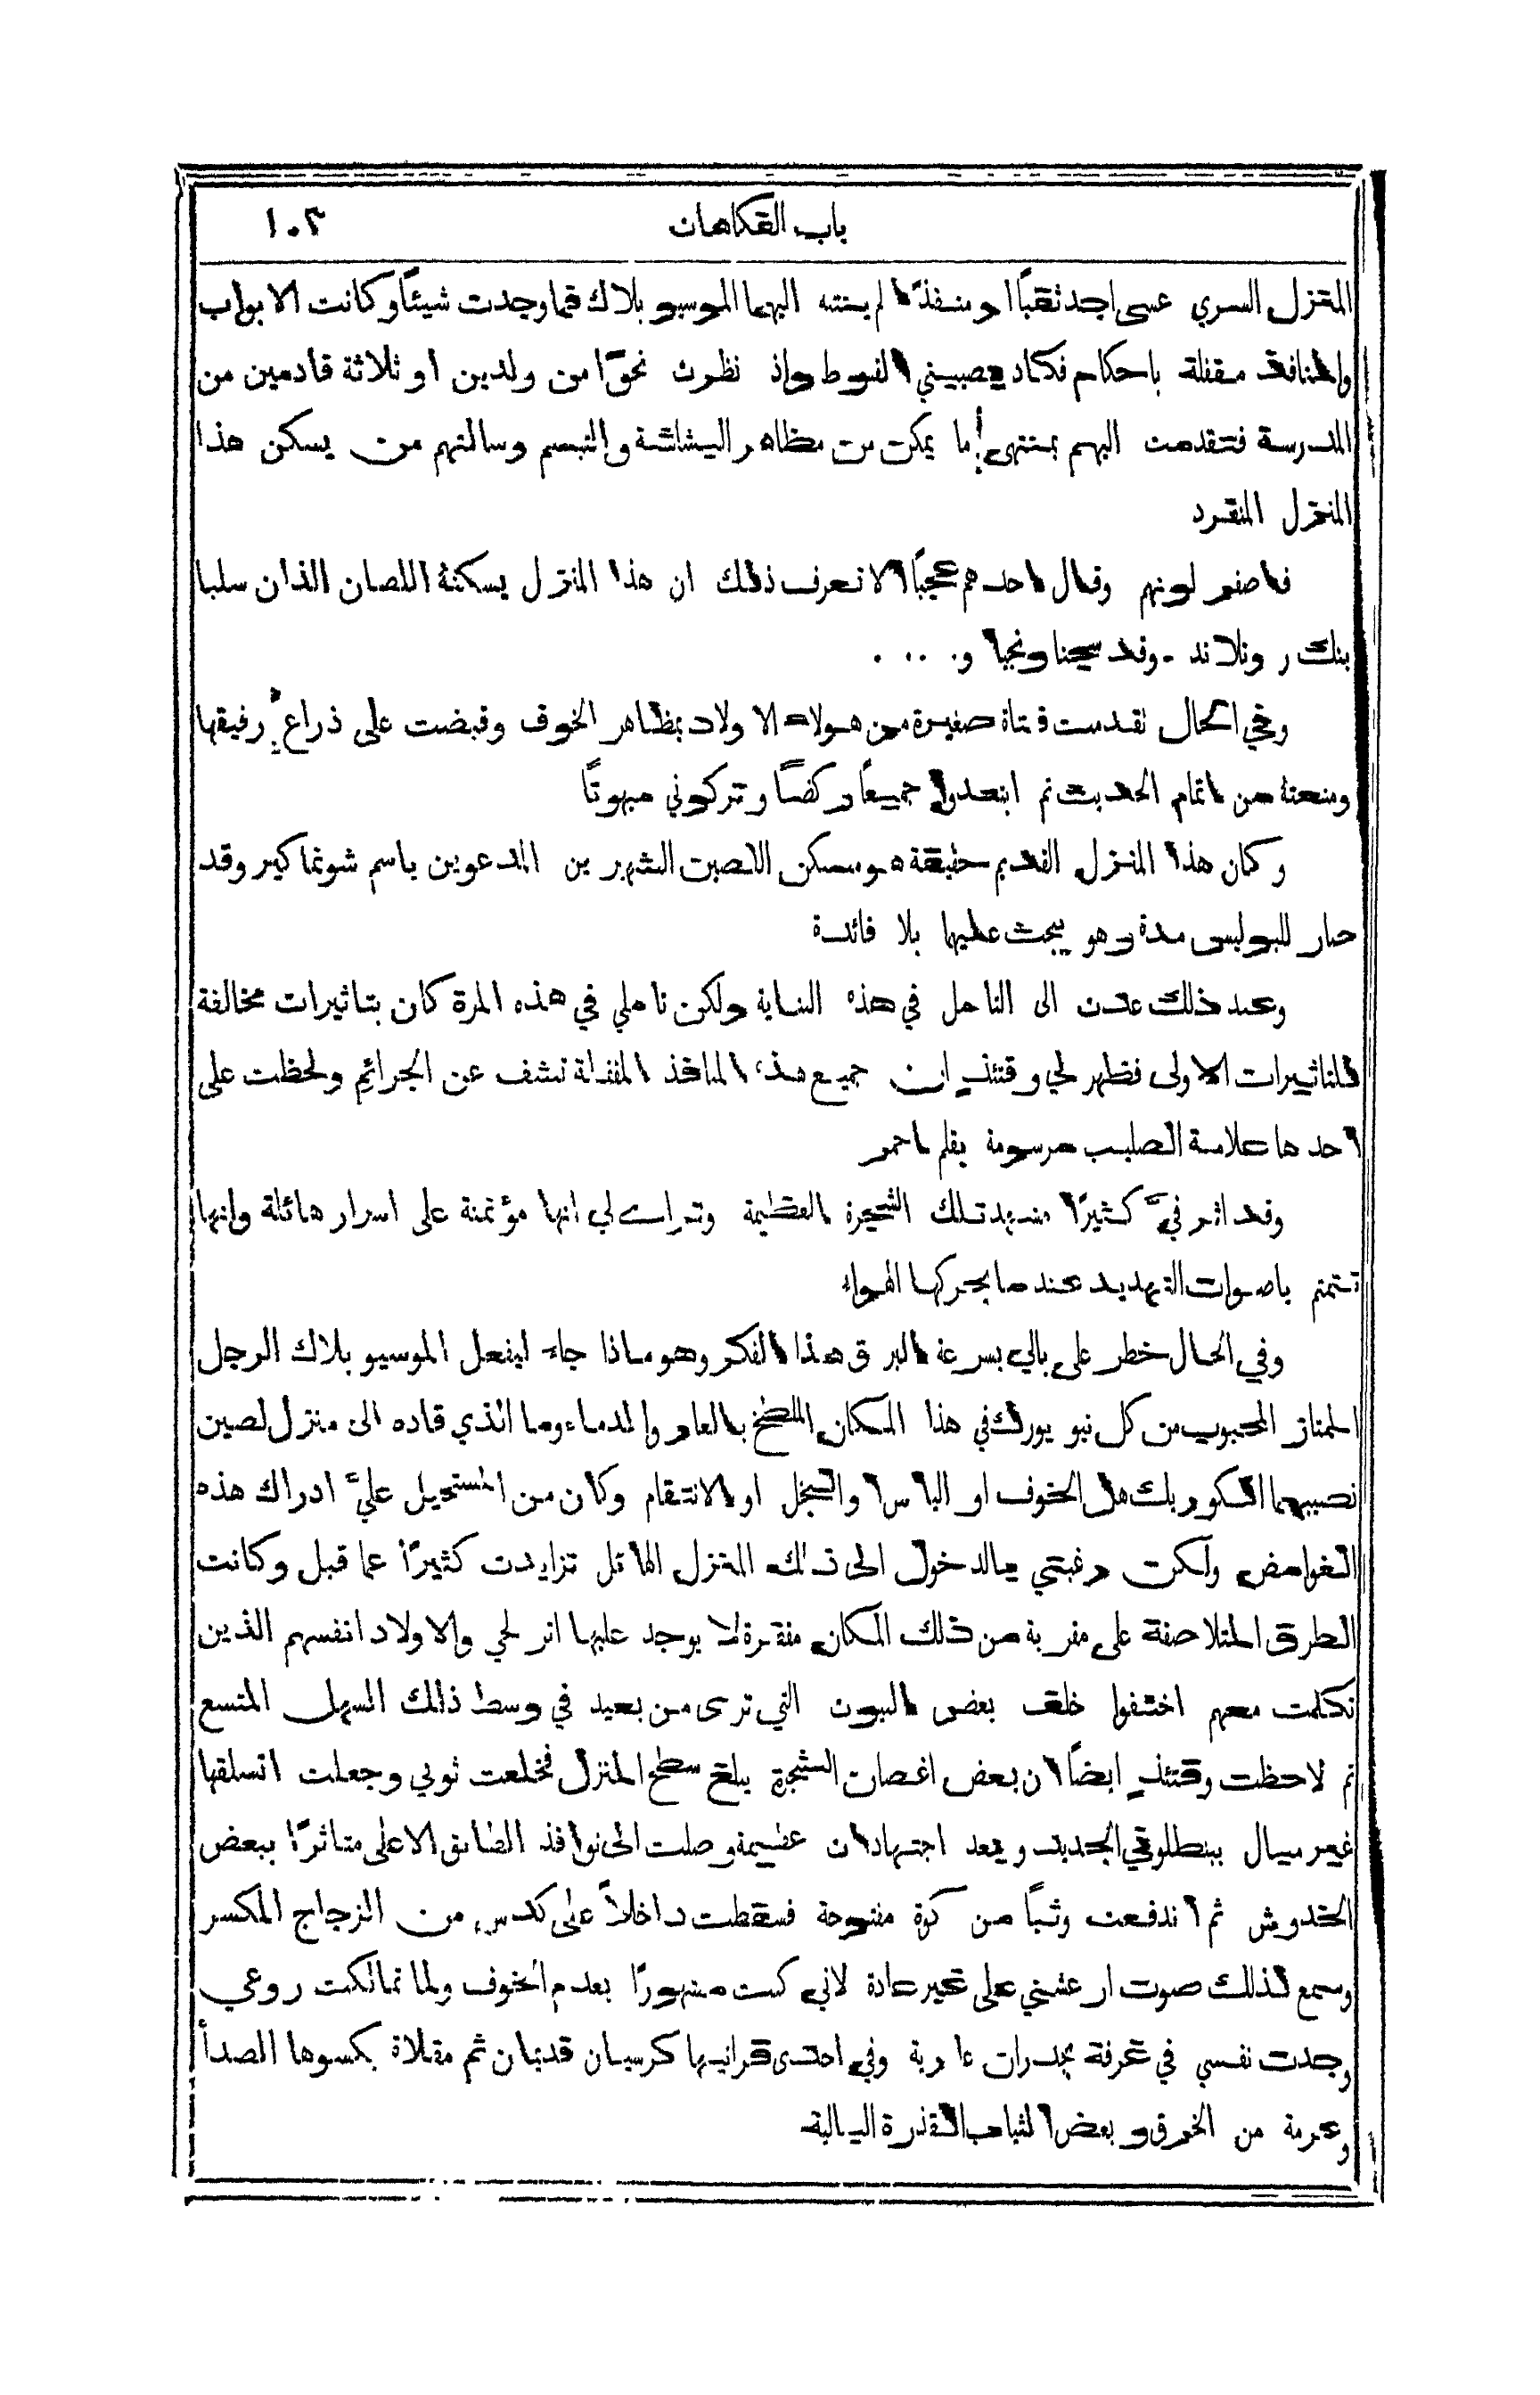 باب الفكاهات ١٠٣
المنزل السري عسى اجد ثقبًا او منفذًا لم ينتبه اليهما الموسيو بلاك فما وجدت شيئًا وكانت الابواب
والمنافذ مقفلة باحكام فكاد يصيبني القنوط واذ نظرت نحوًا من ولدين او ثلاثة قادمين من
المدرسة فتقدمت اليهم بمنتهى ما يمكن من مظاهر البشاشة والتبسم وسالتهم من يسكن هذا
المنزل المنفرد
فاصفر لونهم وقال احدهم عجبًا الا تعرف ذلك ان هذا المنزل يسكنهُ اللصان الذان سلبا
بنك رونلاند - وقد سجنا ونجيا و. . . .
وفي الحال تقدمت فتاة صغيرة من هولاء الاولاد بظاهر الخوف وقبضت على ذراع رفيقها
ومنعتهُ من اتمام الحديث ثم ابتعدوا جميعًا ركضًا وتركوني مبهوتًا
وكان هذا المنزل القديم حقيقة هو مسكن اللصين الشهيرين المدعوين باسم شونماكير وقد
صار للبوليس مدة وهو يبحث عليها بلا فائدة
وعند ذلك عدت الى التامل في هذه البناية ولكن تاملي في هذه المرة كان بتاثيرات مخالفة
للتاثيرات الاولى فظهر لي وقتئذٍ ان جميع هذه المنافذ المقفلة تشف عن الجرائم ولحظت على
احدها علامة الصليب مرسومة بقلم احمر
وقد اثر فيَّ كثيرًا مشهد تلك الشجرة العظيمة وتراءى لي انها مؤتمنة على اسرار هائلة وانها
تتمتم باصوات التهديد عندما يحركها الهواء
وفي الحال خطر على بالي بسرعة البرق هذا الفكر وهو ماذا جاء ليفعل الموسيو بلاك الرجل
الممتاز المحبوب من كل نيو يورك في هذا المكان الملطخ بالعار والدماء وما الذي قاده الى منزل لصين
نصيبهما الكوربك هل الخوف او الباس او البخل او الانتقام وكان من المستحيل عليَّ ادراك هذه
الغوامض ولكن رغبتي بالدخول الى ذلك المنزل الهائل تزايدت كثيرًا عما قبل وكانت
الطرق المتلاصقة على مقربة من ذلك المكان مقفرة لا يوجد عليها اثر لحي والاولاد انفسهم الذين
تكلمت معهم اختفوا خلف بعض البيوت التي ترى من بعيد في وسط ذلك السهل المتسع
ثم لاحظت وقتئذٍ ايضًا ان بعض اغصان الشجرة يبلغ سطح المنزل فخلعت ثوبي وجعلت اتسلقها
غير مبال ببنطلوني الجديد وبعد اجتهادات عظيمة وصلت الى نوافذ الطابق الاعلى متاثرًا ببعض
الخدوش ثم اندفعت وثبًا من كوة مفتوحة فسقطت داخلاً على كدس من الزجاج المكسر
وسمع لذلك صوت ارعشني على غير عادة لاني كنت مشهورًا بعدم الخوف ولما تمالكت روعي
وجدت نفسي في غرفة بجدران عارية وفي احدى قرانيها كرسيان قديمان ثم مقلاة يكسوها الصدأ
وعرمة من الخرق وبعض الثياب القذرة البالية